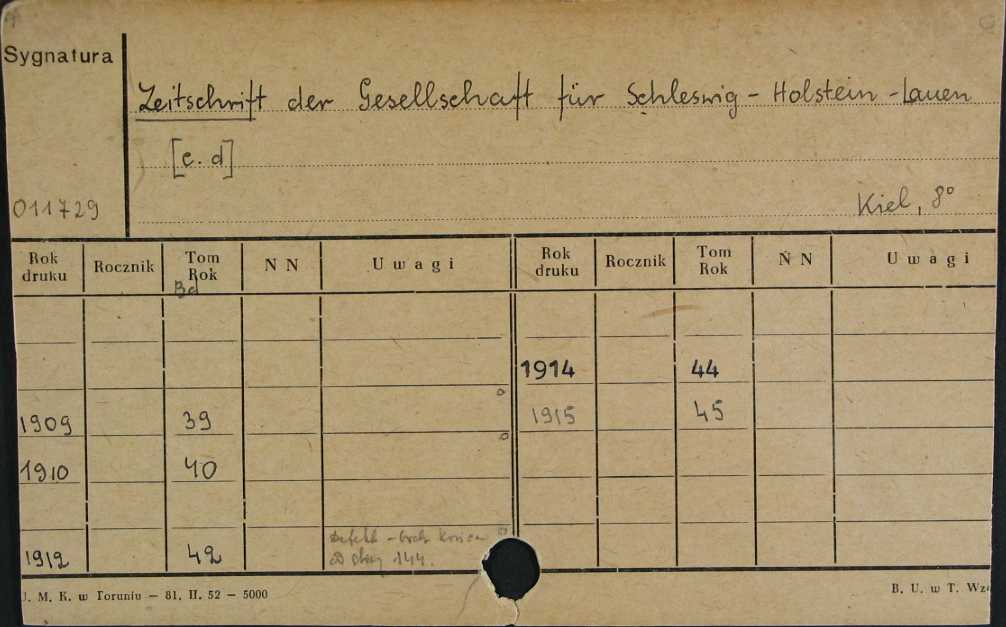 Sygnatura
Zeitschrift der Gesellschaft für Schleswig - Holstein - Lauen
[c. d]
011729
Kiel, 8°
Rok druku Rocznik Tom Rok N N Uwagi Rok druku Rocznik Tom Rok N N Uwagi
Bd
1914 44
1909 39 1915 45
1910 40
Defekt - brak końca
1912 42 od str. 144.
U. M. K. w Toruniu — 81. II. 52 — 5000
B. U. w T. Wz